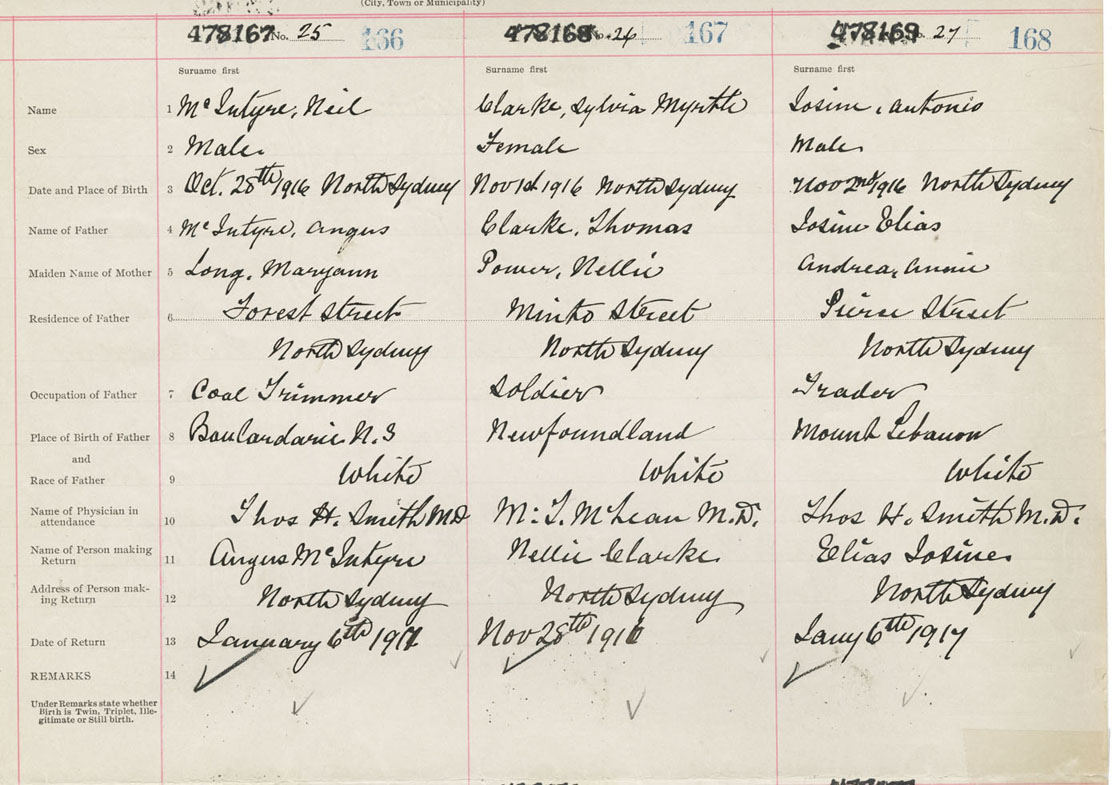 (City, Town or Municipality)
478167 No. 25 166 478168 No. 26 167 478169 No. 27 168
Surname first Surname first Surname first
Name 1 Mc Intyre, Neil Clarke, Sylvia Myrtle Iosine, Antonio
Sex 2 Male Female Male
Date and Place of Birth 3 Oct. 28th 1916 North Sydney Nov 1st 1916 North Sydney Nov 2nd/1916 North Sydney
Name of Father 4 Mc Intyre, Angus Clarke, Thomas Iosine Elias
Maiden Name of Mother 5 Long, Maryann Power, Nellie Andrea, Annie
Residence of Father 6 Forest Street Minto Street Pierse Street
North Sydney North Sydney North Sydney
Occupation of Father 7 Coal Trimmer Soldier Trader
Place of Birth of Father 8 Boulardarie N.S Newfoundland Mount Lebanon
and
Race of Father 9 White White White
Name of Physician in
attendance 10 Thos H. Smith MD M. T. McLean M.D. Thos H. Smith M.D.
Name of Person making
Return 11 Angus Mc Intyre Nellie Clarke Elias Iosine
Address of Person mak-
ing Return 12 North Sydney North Sydney North Sydney
Date of Return 13 January 6th 1917 Nov 28th 1916 Jany 6th 1917
REMARKS 14
Under Remarks state whether
Birth is Twin, Triplet, Ille-
gitimate or Still birth.